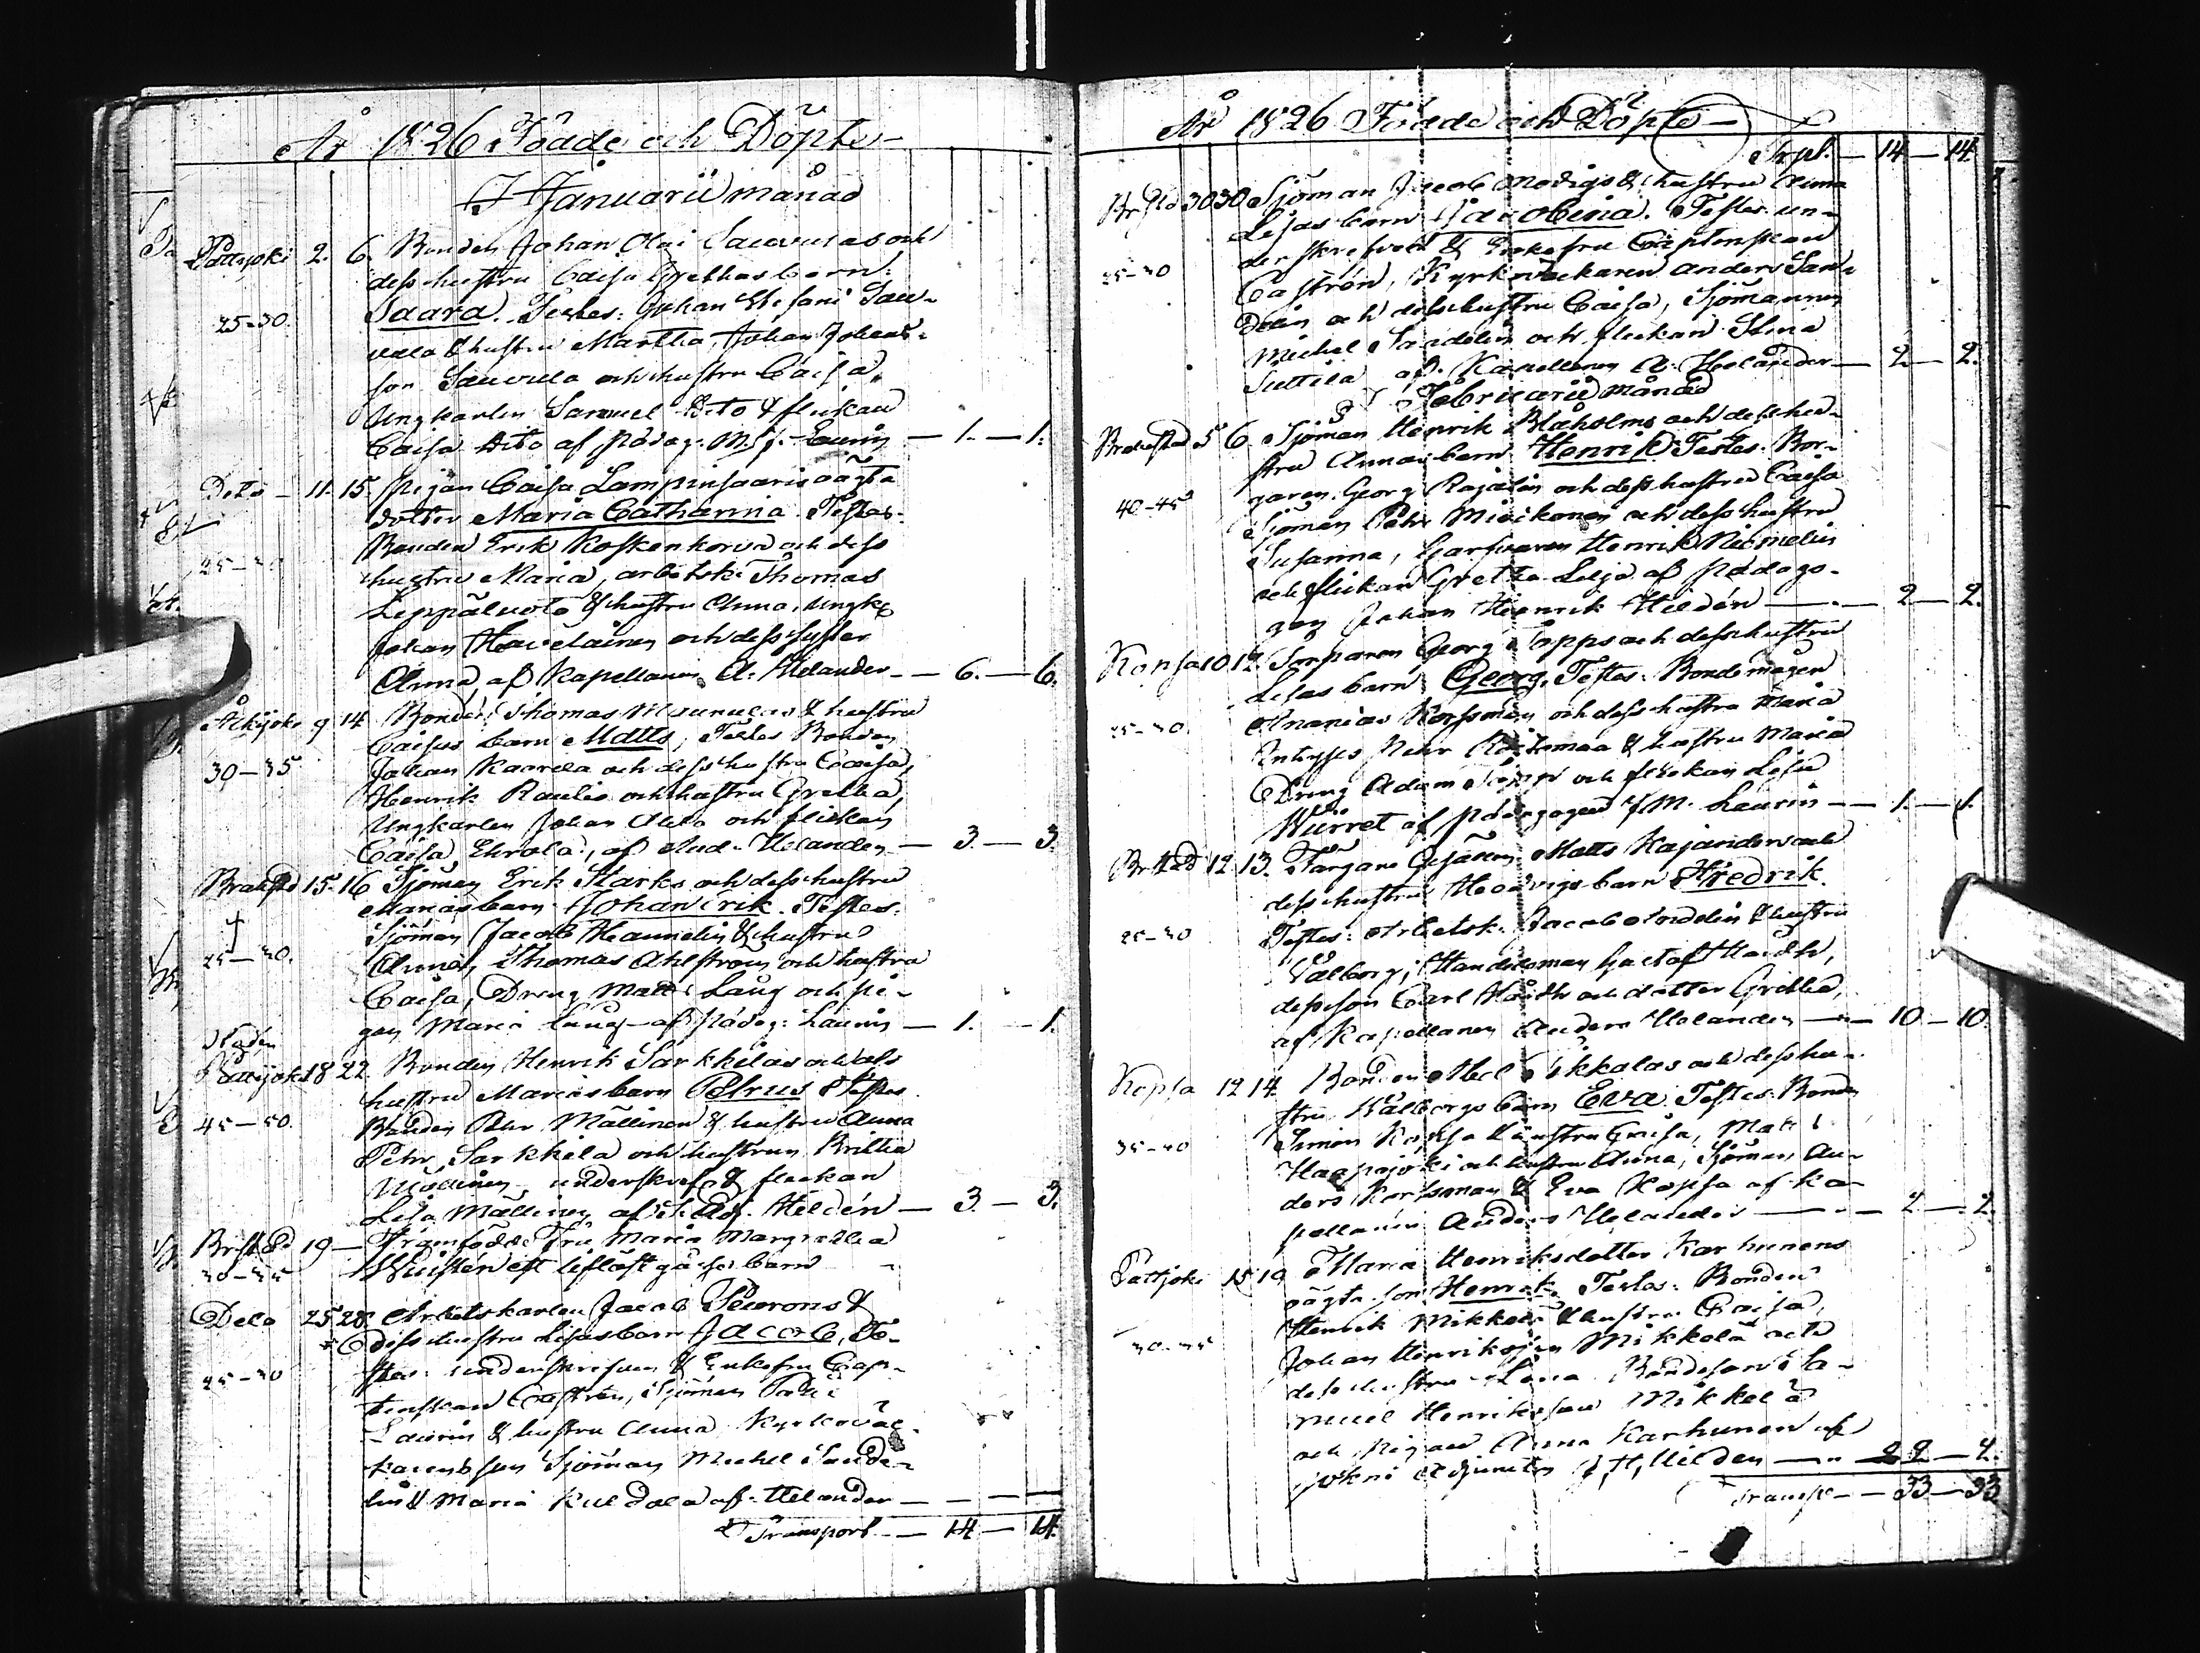 År 1826 Födde och Döpte
I Januarii månad
Pattijoki 2. 6. Bonden Johan Olai Sauvulas och
dess hustru Caisa Grethas barn:
25-30. Saara. Testes: Johan Stefani Sau-
vula & hustru Martha, Johan Johans-
son Sauvula och hustru Caisa,
Ungkarlen Samuel Dito & flickan
Caisa Dito af Pädag: M. J. Laurin — 1. — 1.
Dito — 11. 15. Pigan Caisa Lampinsaaris oägta
dotter Maria Catharina. Testes:
Bonden Erik Koskenkorva och dess
25-30 hustru Maria, arbetsk: Thomas
Leppäluoto & hustru Anna, Ungk:
Johan och dess syster
Anna, af Kapellanen A. Helander — 6. — 6.
9 14 Bonden Thomas & hustru
Caisas barn Matts, Testes Bonden
30-35 Johan Kaarela och dess hustru Caisa,
Henrik Raulio och hustru Gretha,
Ungkarlen Johan och flickan
Caisa, af And. Helander — 3. — 3.
Brahestd 15. 16 Sjöman Erik Starks och dess hustru
Marias barn Johan Erik. Testes:
Sjöman Jacob & hustru
25-30. Anna, Thomas Ahlström och hustru
Caisa, Dreng Matts Lång och pi-
gan Maria Lång af Pädag: Laurin — 1. — 1.
Pattijoki 18 22. Bonden Henrik Sarkkilas och dess
hustru Marias barn Petrus Testes
45-50. Bonden Petter Mällinen & hustru Anna
Petr. Sarkkila och hustrun Britha
underskref. & flickan
Lisa Mällinen af Hildén — 3 — 3.
Brhstd 19 — Framfödde Fru Maria Margretha
30-35 ett lifslöst gåsse barn
Deto 25 28. Arbetskarlen Jacob Peurons &
dess hustru Lisas barn Jacob, Te-
25-30 stes: underskrifven & Enkefru Cap-
tenskan Castrén, Sjöman
Laurin & hustru Anna Kyrkoväc-
karens son Sjöman Michel Sande-
lin & Maria af Helander — — —
Transport — 14 — 14.
År 1826 Födde och Döpte
Trpt. — 14 — 14.
Brhstd 30 30 Sjöman Jacob Modigs & hustru Anna
Lisas barn Jacobina. Testes un-
derskrefven & Enkefru Captenskan
25-30 Castrén, Kyrkoväckaren Anders San-
delin och dess hustru Caisa, Sjömannen
Michel Sandelin och flickan Stina
Suttila af Kapellanen A. Helander — 2 — 2.
I Februarii månad
Brahestad 5 6. Sjöman Henrik Blåholms och dess hu-
stru Annas barn Henrik Testes: Bor-
garen Georg Rajalin och dess hustru Caisa
40-45 Sjöman Petr och dess hustru
Susanna, Garfvaren Henrik Niemelin
och flickan Gretha Lilja af Pädago-
gen Johan Henrik Hildén — 2 — 2.
Kopsa 10 12. Torparen Georg Topps och dess hustru
Lisas barn Georg, Testes: Bondemågen
25-30. Ananias och dess hustru Maria
Intyges & hustru Maria
Dreng Adam och flickan Lisa
af Pädagogen J M. Laurin — 1. — 1.
Brhstad 12 13. Färgare Gesällen Matts Kajanders och
dess hustru Hedvigs barn Fredrik.
25-30 Testes: Arbetsk. Jacob & hustru
Valborg, Handelsman Gustaf
dess son Carl och dotter Gretha,
af Kapellanen Anders Helander — 10 — 10
Kopsa 12 14. Bonden Abel och dess hu-
stru Walborgs barn Eva Testes: Bonden
35-40 Simon Kopsa & hustru Caisa, Matts
Haapajoki och hustru Anna, Sjöman An-
ders Korpman & Eva Kopsa af Ka-
pellanen Anders Helander — 2. — 2.
Pattjoki 15 19 Maria Henriksdotter Karhunens
oägta son Henrik. Testes: Bonden
Henrik Mikkola & hustru Caisa,
30-35 Johan Henriksson Mikkola och
dess hustru Bondeson Sa-
muel Henriksson Mikkola
och Pigan Anna Karhunen af
Sokne Adjuncten J. H. Hildén — 2 — 2.
Transp — 33 — 33